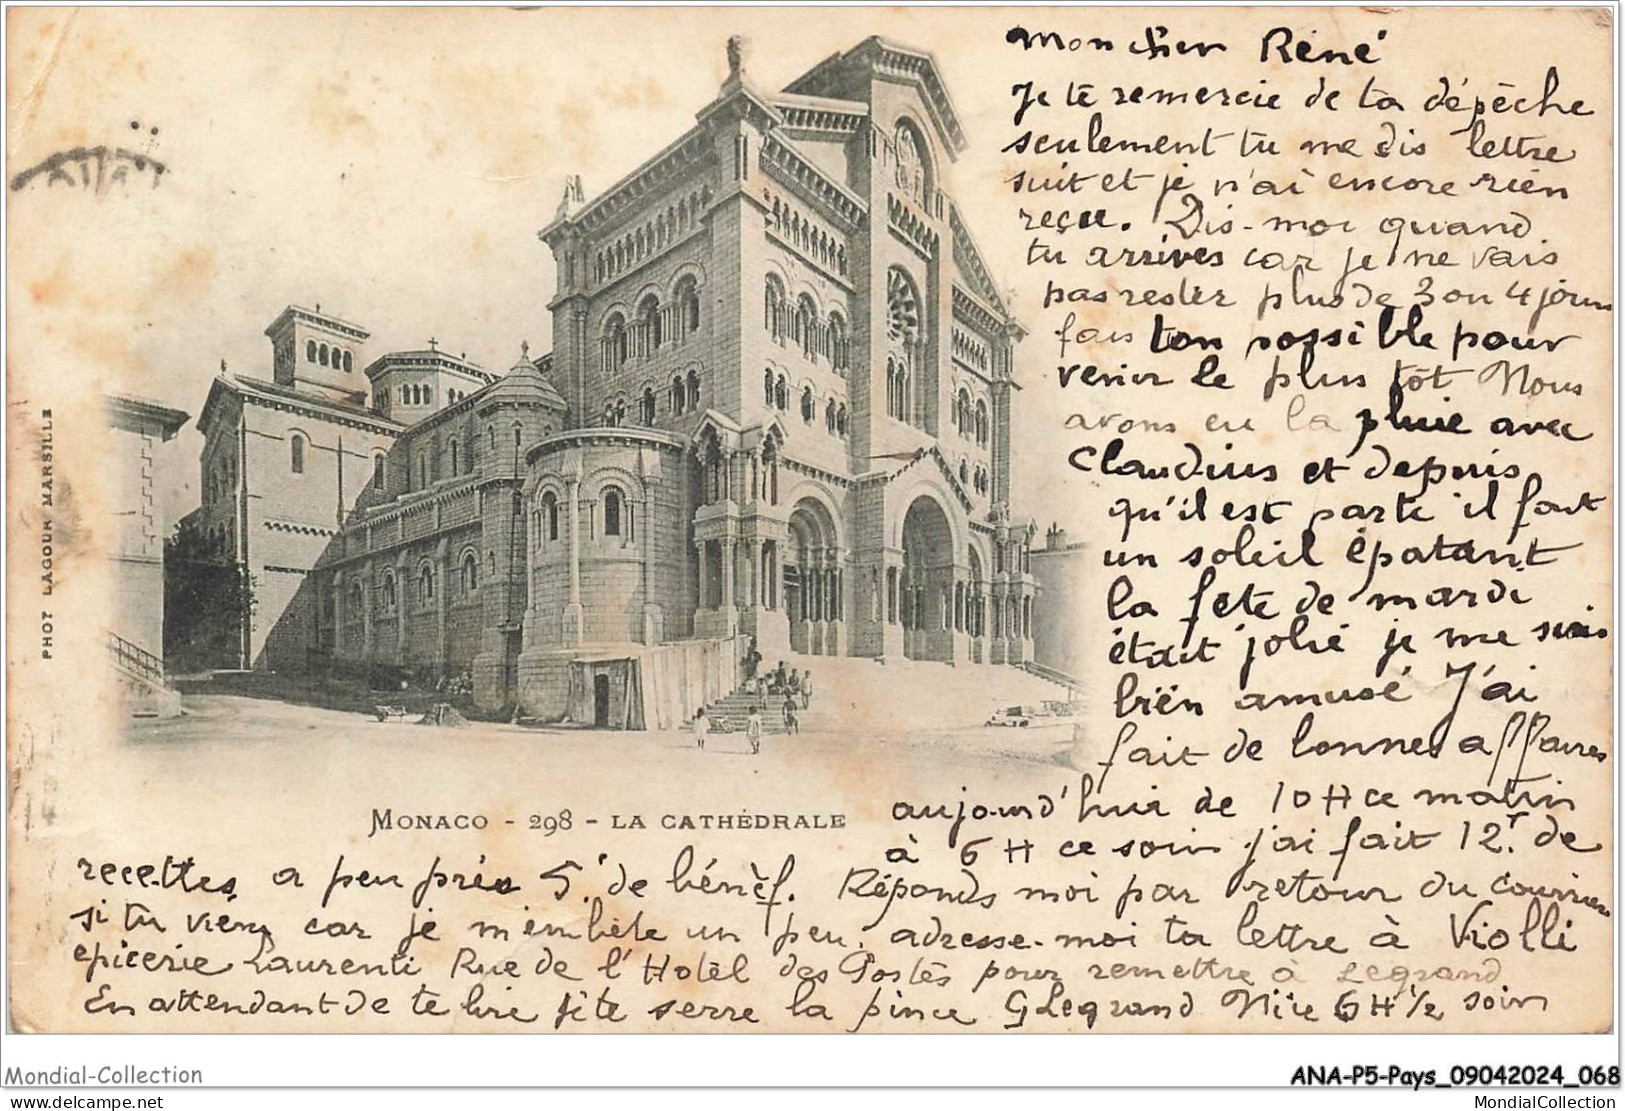 Mon cher Réné
Je te remercie de ta dépèche
seulement tu me dis lettre
suit et je n'ai encore rien
reçu. Dis-moi quand
tu arrives car je ne vais
pas rester plus de 3 ou 4 jours
fais ton possible pour
venir le plus tôt Nous
avons eu la pluie avec
Claudius et depuis
qu'il est parti il fait
un soleil épatant
la fete de mardi
était jolie je me suis
bien amusé J'ai
fait de bonnes affaires
aujourd'hui de 10 H ce matin
à 6 H ce soir j'ai fait 12f. de
recettes a peu près 5f de bénéf. Réponds moi par retour du courrier
si tu viens car je m'embête un peu. adresse-moi ta lettre à Violli
epicerie Laurenti Rue de l'Hotel des Postes pour remettre à Legrand
En attendant de te lire je te serre la pince G Legrand Nice 6 H 1/2 soir
MONACO - 298 - LA CATHÉDRALE
PHOT LACOUR MARSEILLE
Mondial-Collection
ANA-P5-Pays_09042024_068
delcampe.net
MondialCollection